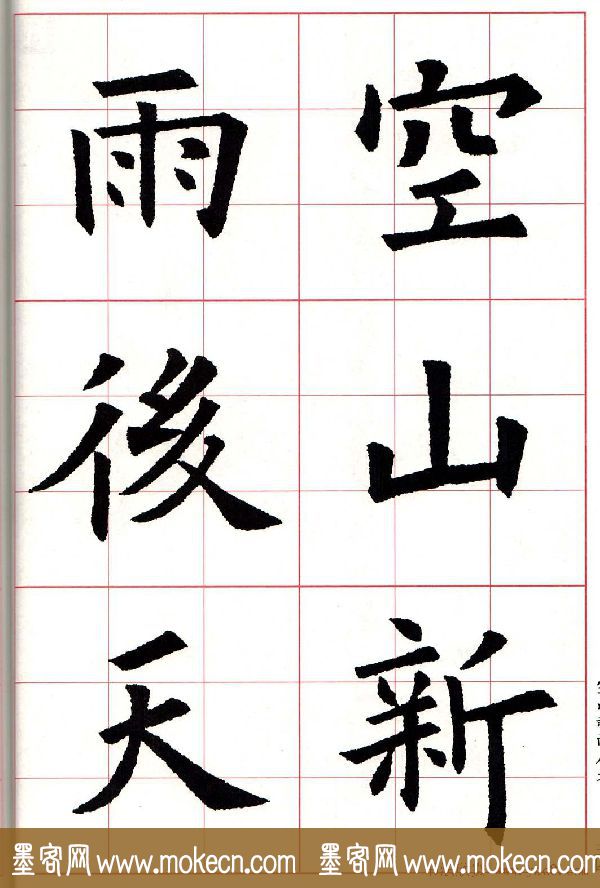 空山新
雨後天
墨客网 www.mokecn.com 墨客网 www.mokecn.com